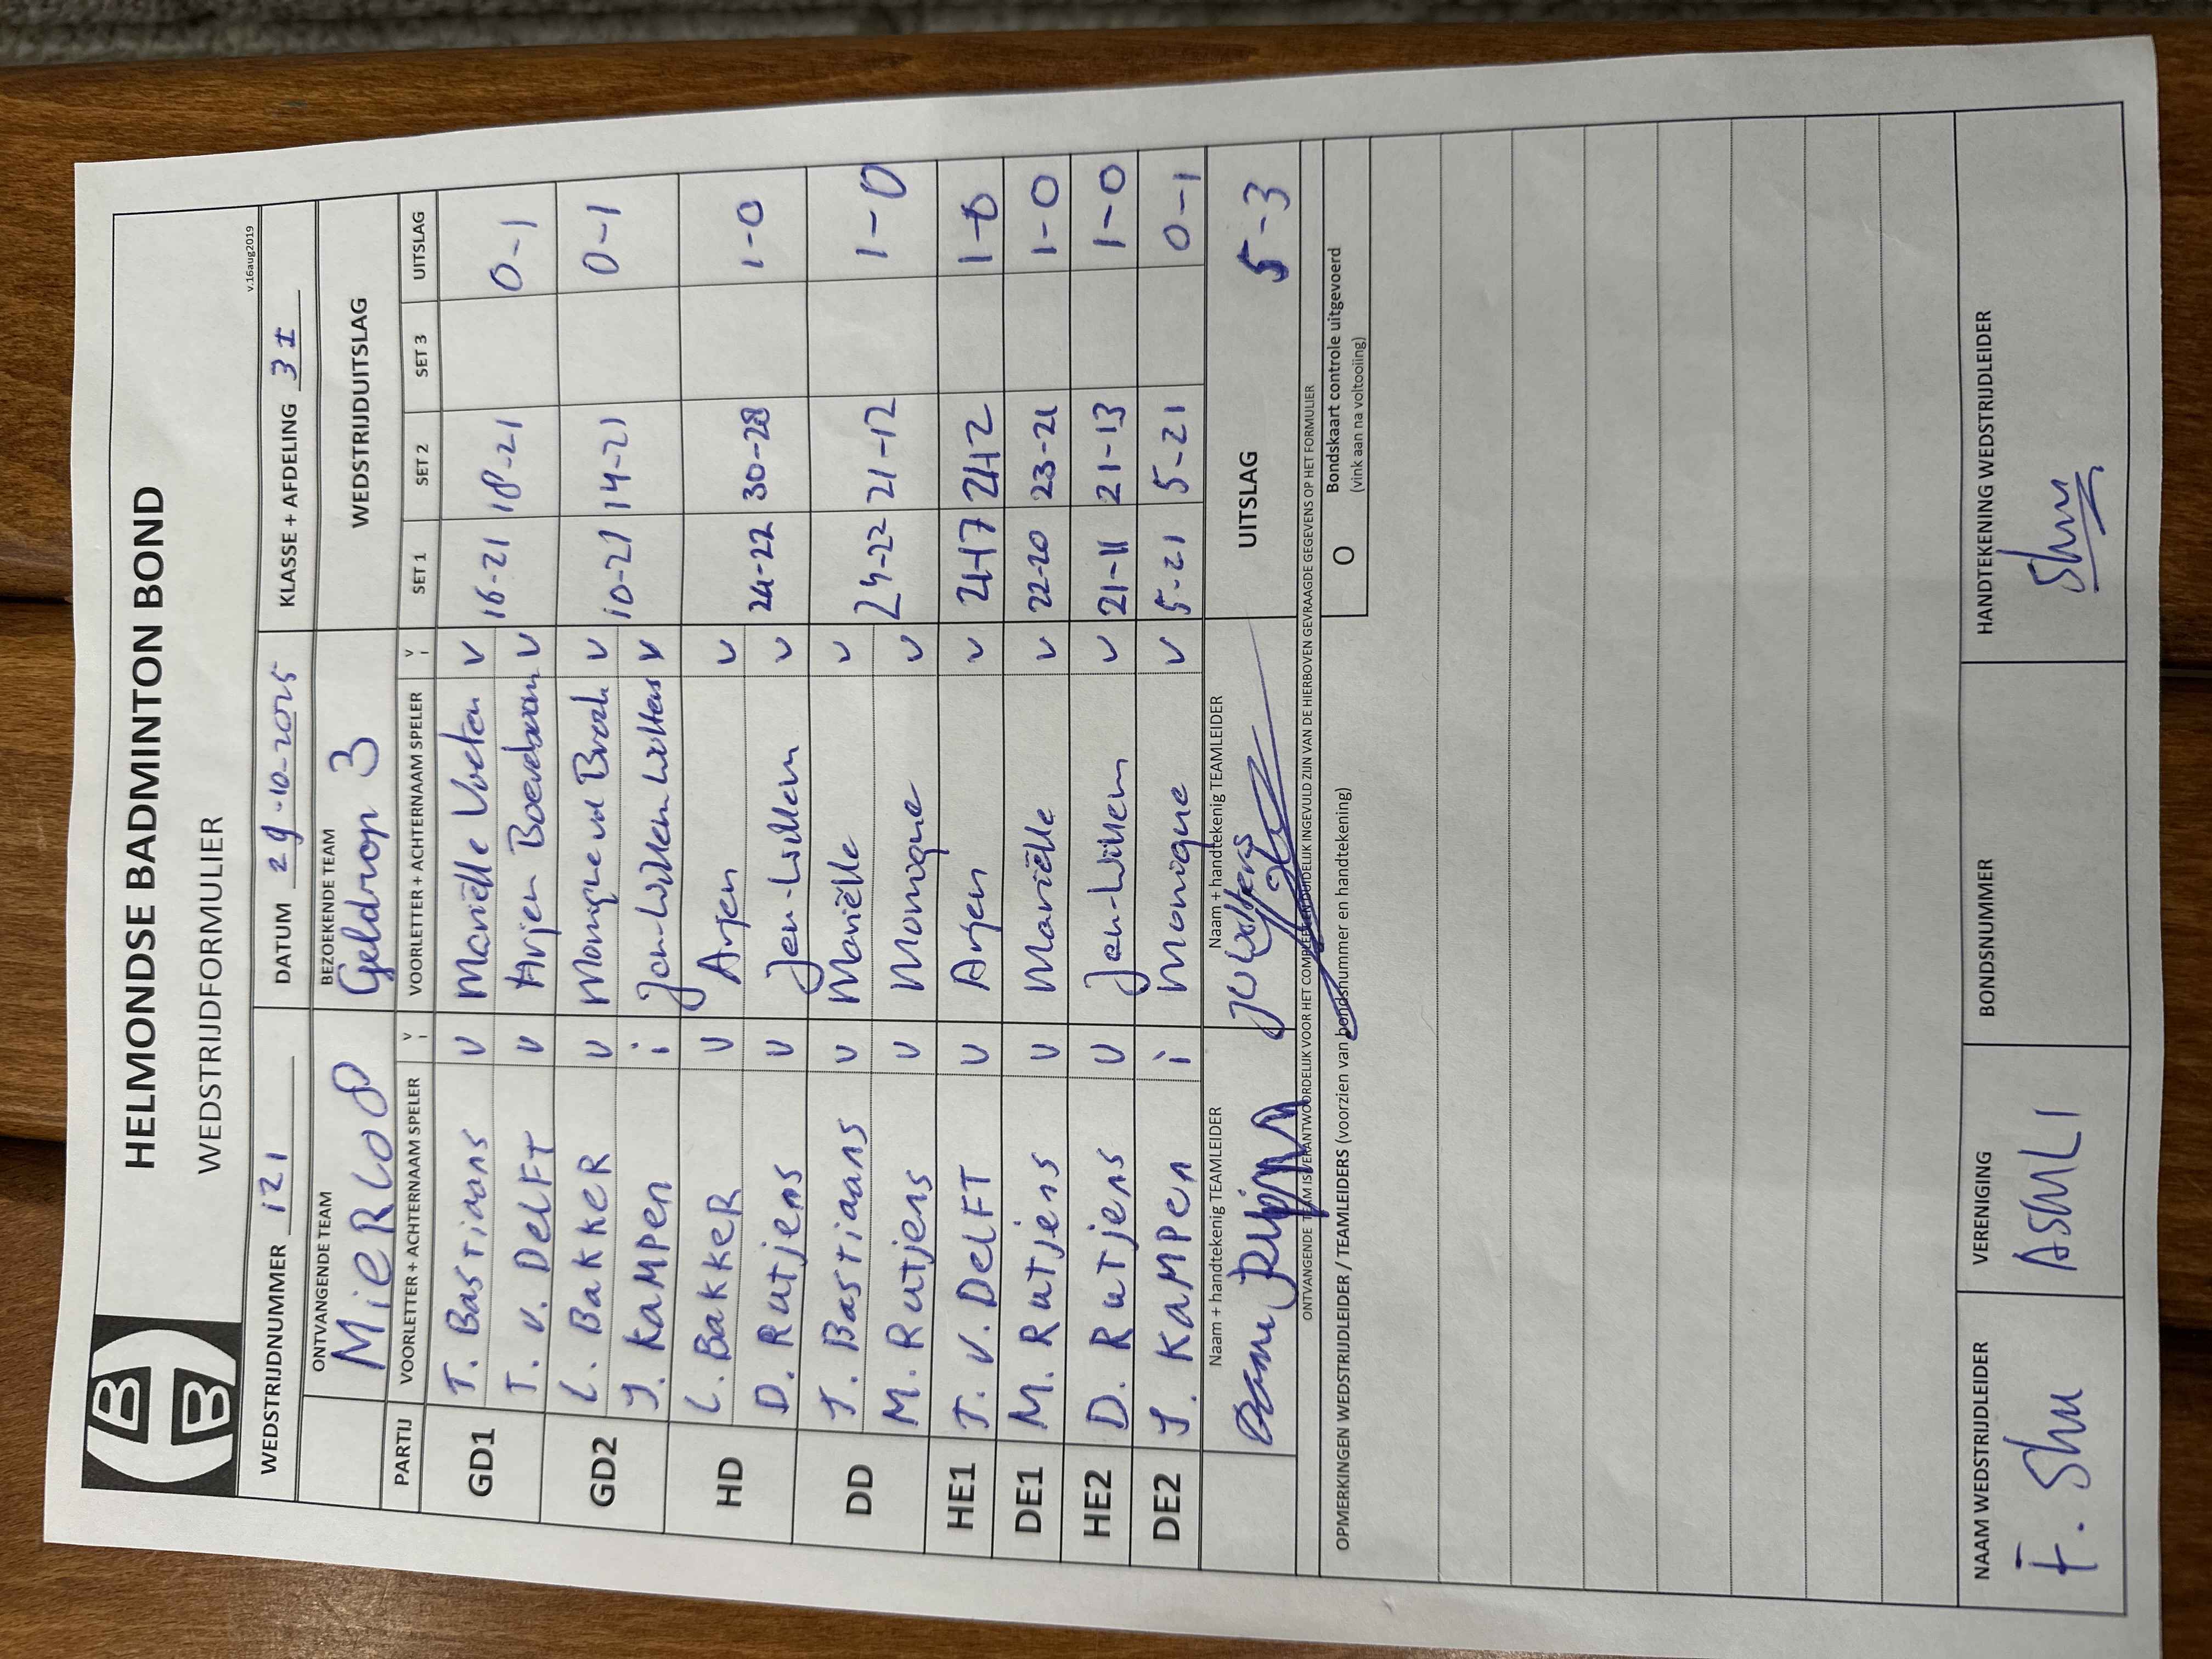 HBB
HELMONDSE BADMINTON BOND
WEDSTRIJDFORMULIER
v.16aug2019
WEDSTRIJDNUMMER 121 DATUM 29-10-2025 KLASSE + AFDELING 3I
ONTVANGENDE TEAM BEZOEKENDE TEAM WEDSTRIJDUITSLAG
MieRLo 8 Geldrop 3
PARTIJ VOORLETTER + ACHTERNAAM SPELER V i VOORLETTER + ACHTERNAAM SPELER V i SET 1 SET 2 SET 3 UITSLAG
GD1 T. BASTiaans V Mariëlle Voeten V 16-21 18-21 0-1
T. v. DelFT V Arjen V
GD2 L. BaKKeR V Monique vd V 10-21 14-21 0-1
J. KaMPen i Jan-Willem Wolters V
HD L. BaKKeR V Arjen V
D. Rutjens V Jan-Willem V 24-22 30-28 1-0
DD T. BaSTiaans V Mariëlle V
M. Rutjens V Monique V 24-22 21-12 1-0
HE1 T. v. DelFT V Arjen V 21-17 1-0
DE1 M. Rutjens V Mariëlle V 22-20 23-21 1-0
HE2 D. RuTjens V Jan-Willem V 21-11 21-13 1-0
DE2 J. KaMPen i Monique V 5-21 5-21 0-1
Naam + handtekenig TEAMLEIDER Naam + handtekenig TEAMLEIDER UITSLAG 5-3
JW Wolters
ONTVANGENDE TEAM IS VERANTWOORDELIJK VOOR HET COMPLEET EN DUIDELIJK INGEVULD ZIJN VAN DE HIERBOVEN GEVRAAGDE GEGEVENS OP HET FORMULIER
OPMERKINGEN WEDSTRIJDLEIDER / TEAMLEIDERS (voorzien van bondsnummer en handtekening) O Bondskaart controle uitgevoerd
(vink aan na voltooiing)
NAAM WEDSTRIJDLEIDER VERENIGING BONDSNUMMER HANDTEKENING WEDSTRIJDLEIDER
F. Shu ASML1 Shu